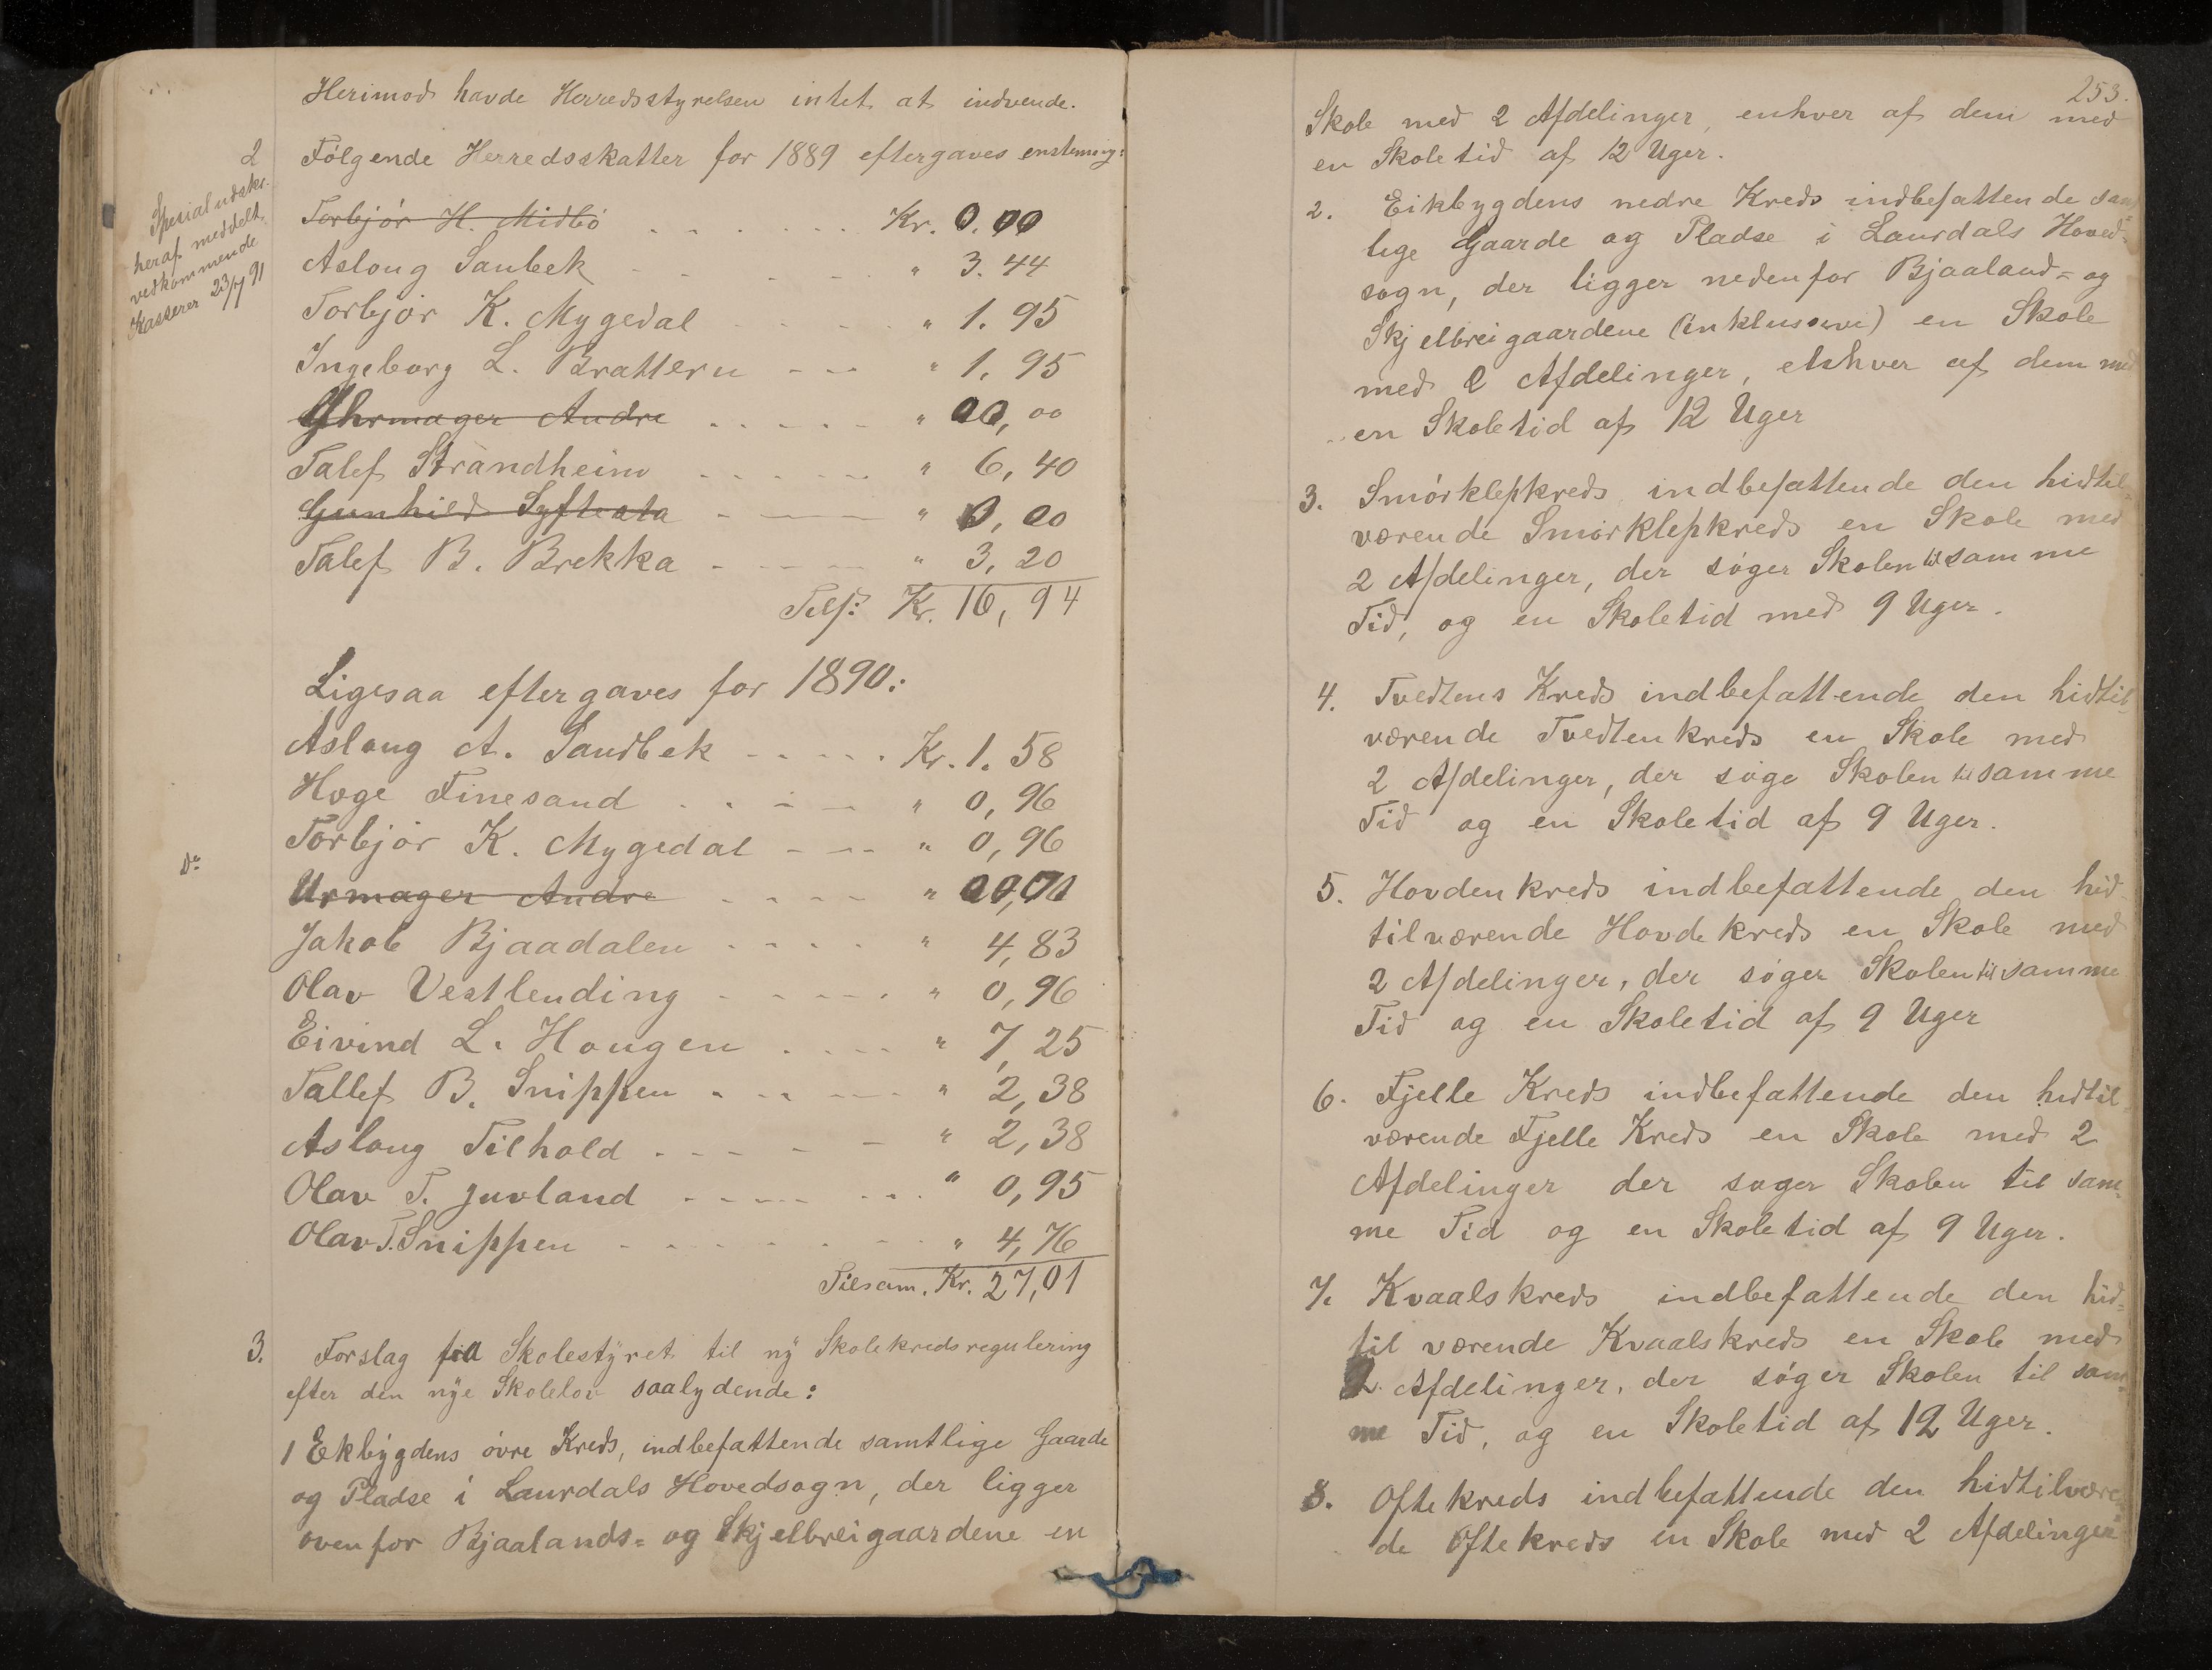 Herimod havde Herredsstyrelsen intet at indvende.
2
Følgende Herredsskatter for 1889 eftergaves enstemmig:
Spesialudskr.
heraf meddelt
vedkommende
Kasserer 23/7 91
Torbjør H. Midbø . . . . . . Kr. 0.00
Aslaug Sanbek - - - - - " 3.44
Torbjør K. Mygedal - - - - - " 1.95
Ingeborg L. Bratteru - - - " 1.95
Uhrmager Andre . . . . . - " 00,00
Talef Strandheim . . . . . . " 6,40
Gunhild Syftesta - — — " 0,00
Talef B. Brekka - - - - — " 3,20
Tils: Kr. 16,94
Ligesaa eftergaves for 1890:
Aslaug A. Sandbek - - - - . Kr. 1.58
Hoge Finesand . . - — " 0,96
Torbjør K. Mygedal - - - - " 0,96
D:
Urmager Andre . - - - - " 00,00
Jakob Bjaadalen . . . . " 4,83
Olav Vestlending - - - - - . " 0,96
Eivind L. Hougen . . - - - " 7,25
Tallef B. Snippen - - - - — " 2,38
Aslaug Tilhold . - - - - — " 2,38
Olav T. Juvland - - - - - . . . " 0,95
Olav T. Snippen - - - - - - - - " 4,76
Tilsam. Kr. 27,01
3. Forslag fra Skolestyret til ny Skolekredsregulering
efter den nye Skolelov saalydende:
1 Ekbygdens øvre Kreds, indbefattende samtlige Gaarde
og Pladse i Laurdals Hovedsogn, der ligger
ovenfor Bjaalands= og Skjelbreigaardene en
253.
Skole med 2 Afdelinger, enhver af dem med
en Skoletid af 12 Uger.
2. Eikbygdens nedre Kreds indbefattende sam=
lige Gaarde og Pladse i Laurdals Hoved=
sogn, der ligger nedenfor Bjaaland= og
Skjelbreigaardene (inklusive) en Skole
med 2 Afdelinger, enhver af dem med
en Skoletid af 12 Uger
3. Smørklepkreds indbefattende den hidtil=
værende Smørklepkreds en Skole med
2 Afdelinger, der søger Skolen til samme
Tid, og en Skoletid med 9 Uger.
4. Tvedtens Kreds indbefattende den hidtil=
værende Tvedtenkreds en Skole med
2 Afdelinger, der søge Skolen til samme
Tid og en Skoletid af 9 Uger.
5. Hovdenkreds indbefattende den hid=
tilværende Hovdekreds en Skole med
2 Afdelinger, der søger Skolen til samme
Tid og en Skoletid af 9 Uger
6. Fjelle Kreds indbefattende den hidtil=
værende Fjelle Kreds en Skole med 2
Afdelinger der søger Skolen til sam=
me Tid og en Skoletid af 9 Uger.
7. Kvaalskreds indbefattende den hid=
til værende Kvaalskreds en Skole med
2 Afdelinger, der søger Skolen til sam=
me Tid, og en Skoletid af 12 Uger.
8. Oftekreds indbefattende den hidtilværen=
de Oftekreds en Skole med 2 Afdelinger